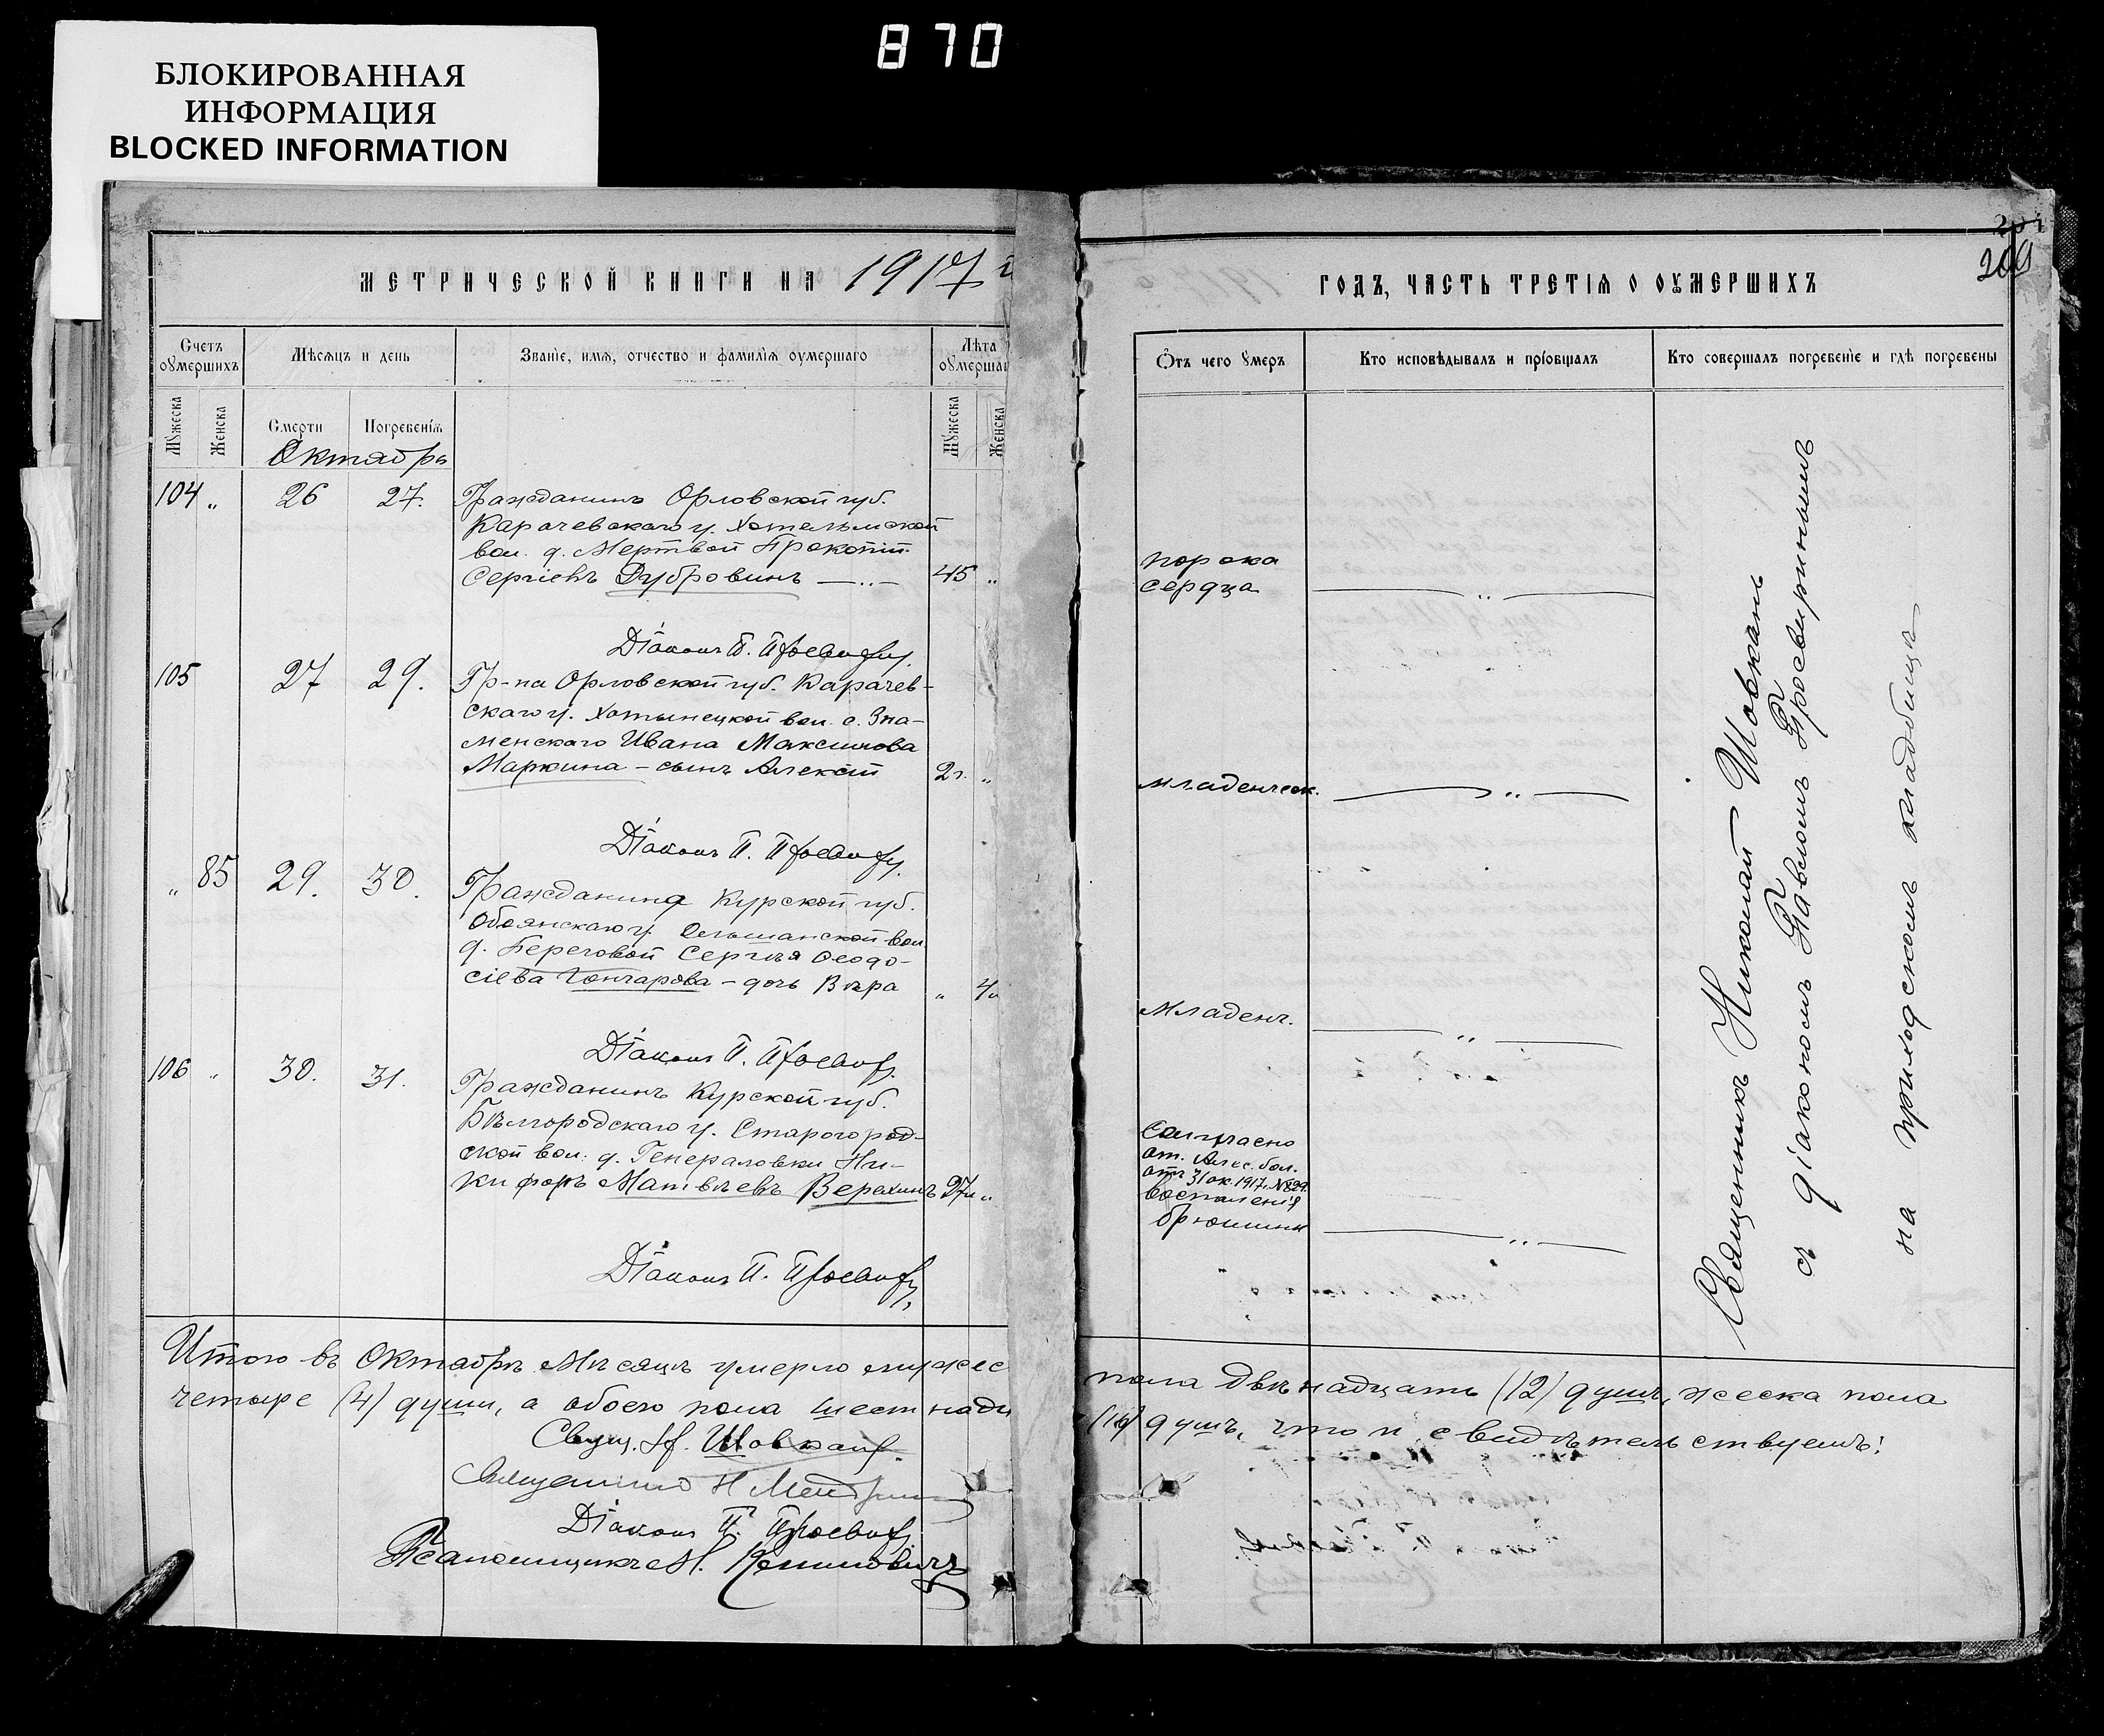 870
БЛОКИРОВАННАЯ
ИНФОРМАЦИЯ
BLOCKED INFORMATION
МЕТРИЧЕСКОЙ КНИГИ НА 1917
Счетъ оумершихъ
Мѣсяцъ и день
Званіе, имя, отчество и фамилія оумершаго
Лѣта оумершаг
Мужеска
Женска
Смерти
Погребенія
Мужеска
Женска
Октябрь
104 „ 26 27. Гражданинъ Орловской губ.
Карачевскаго у. Хотельмской
вол. д. Мертвой Прокопій
Сергіевъ Дубровинъ — „ — 45 „
Діаконъ П. Просвир
105 27 29. Гр-на Орловской губ. Карачев-
скаго у. Хотынецкой вол. с. Зна-
менскаго Ивана Максимова
Маркина – сынъ Алексій 2 г. „
Діаконъ П. Просвир
„ 85 29. 30. Гражданина Курской губ.
Обоянскаго у. Ольшанской вол.
д. Береговой Сергѣя Ѳеодо-
сіева Гончарова – дочь Вѣра „ 4
Діаконъ П. Просвир
106 „ 30. 31. Гражданинъ Курской губ.
Бѣлгородскаго у. Старогород-
ской вол. д. Генераловки Ни-
кифоръ Матвѣевъ Верахинъ 27 „
Діаконъ П. Просвир
Итого въ Октябрѣ мѣсяцѣ умерло мужес
четыре (4) души, а обоего пола шестнадц
Свящ. Н. Шовкань
Священникъ Н.
Діаконъ П. Просвир
Псаломщикъ
204
209
ГОДЪ, ЧАСТЬ ТРЕТІЯ О ОУМЕРШИХЪ
Отъ чего умеръ
Кто исповѣдывалъ и пріобщалъ
Кто совершалъ погребеніе и гдѣ погребены
порока
сердца — „ —
младенческ. — „ —
младенч. — „ —
Согласно
от. Алес. бол.
отъ 31 ок. 1917 г. № 829.
воспаленія
брюшины — „ —
Священникъ Николай Шовкань
съ діакономъ Павломъ Просвирнинымъ
на приходскомъ кладбищѣ
пола двѣнадцать (12) душъ, женска пола
(16) душъ, что и свидѣтельствуемъ: